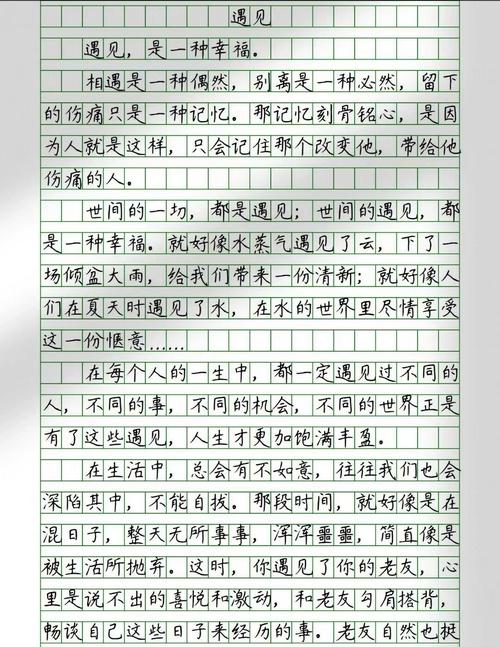 遇见
遇见，是一种幸福。
相遇是一种偶然，别离是一种必然，留下
的伤痛只是一种记忆。那记忆刻骨铭心，是因
为人就是这样，只会记住那个改变他，带给他
伤痛的人。
世间的一切，都是遇见；世间的遇见，都
是一种幸福。就好像水蒸气遇见了云，下了一
场倾盆大雨，给我们带来一份清新；就好像人
们在夏天时遇见了水，在水的世界里尽情享受
这一份惬意……
在每个人的一生中，都一定遇见过不同的
人，不同的事，不同的机会，不同的世界正是
有了这些遇见，人生才更加饱满丰盈。
在生活中，总会有不如意，往往我们也会
深陷其中，不能自拔。那段时间，就好像是在
混日子，整天无所事事，浑浑噩噩，简直像是
被生活所抛弃。这时，你遇见了你的老友，心
里是说不出的喜悦和激动，和老友勾肩搭背，
畅谈自己这些日子来经历的事。老友自然也挺